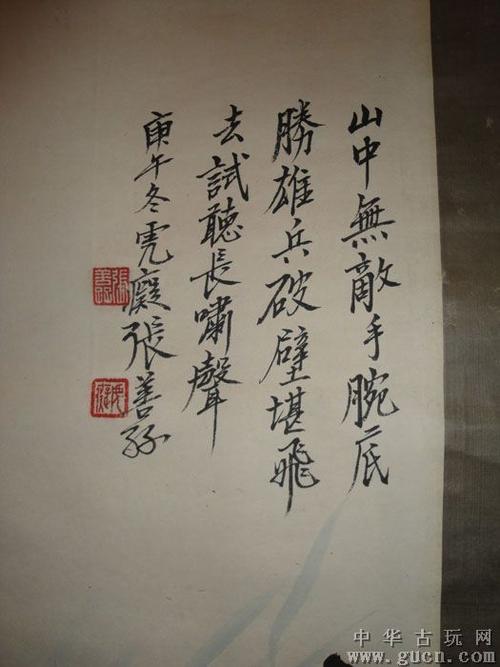 山中無敵手腕底
勝雄兵破壁堪飛
去試聽長嘯聲
庚午冬虎癡張善孖
張善
虎癡
中华古玩网
www.gucn.com